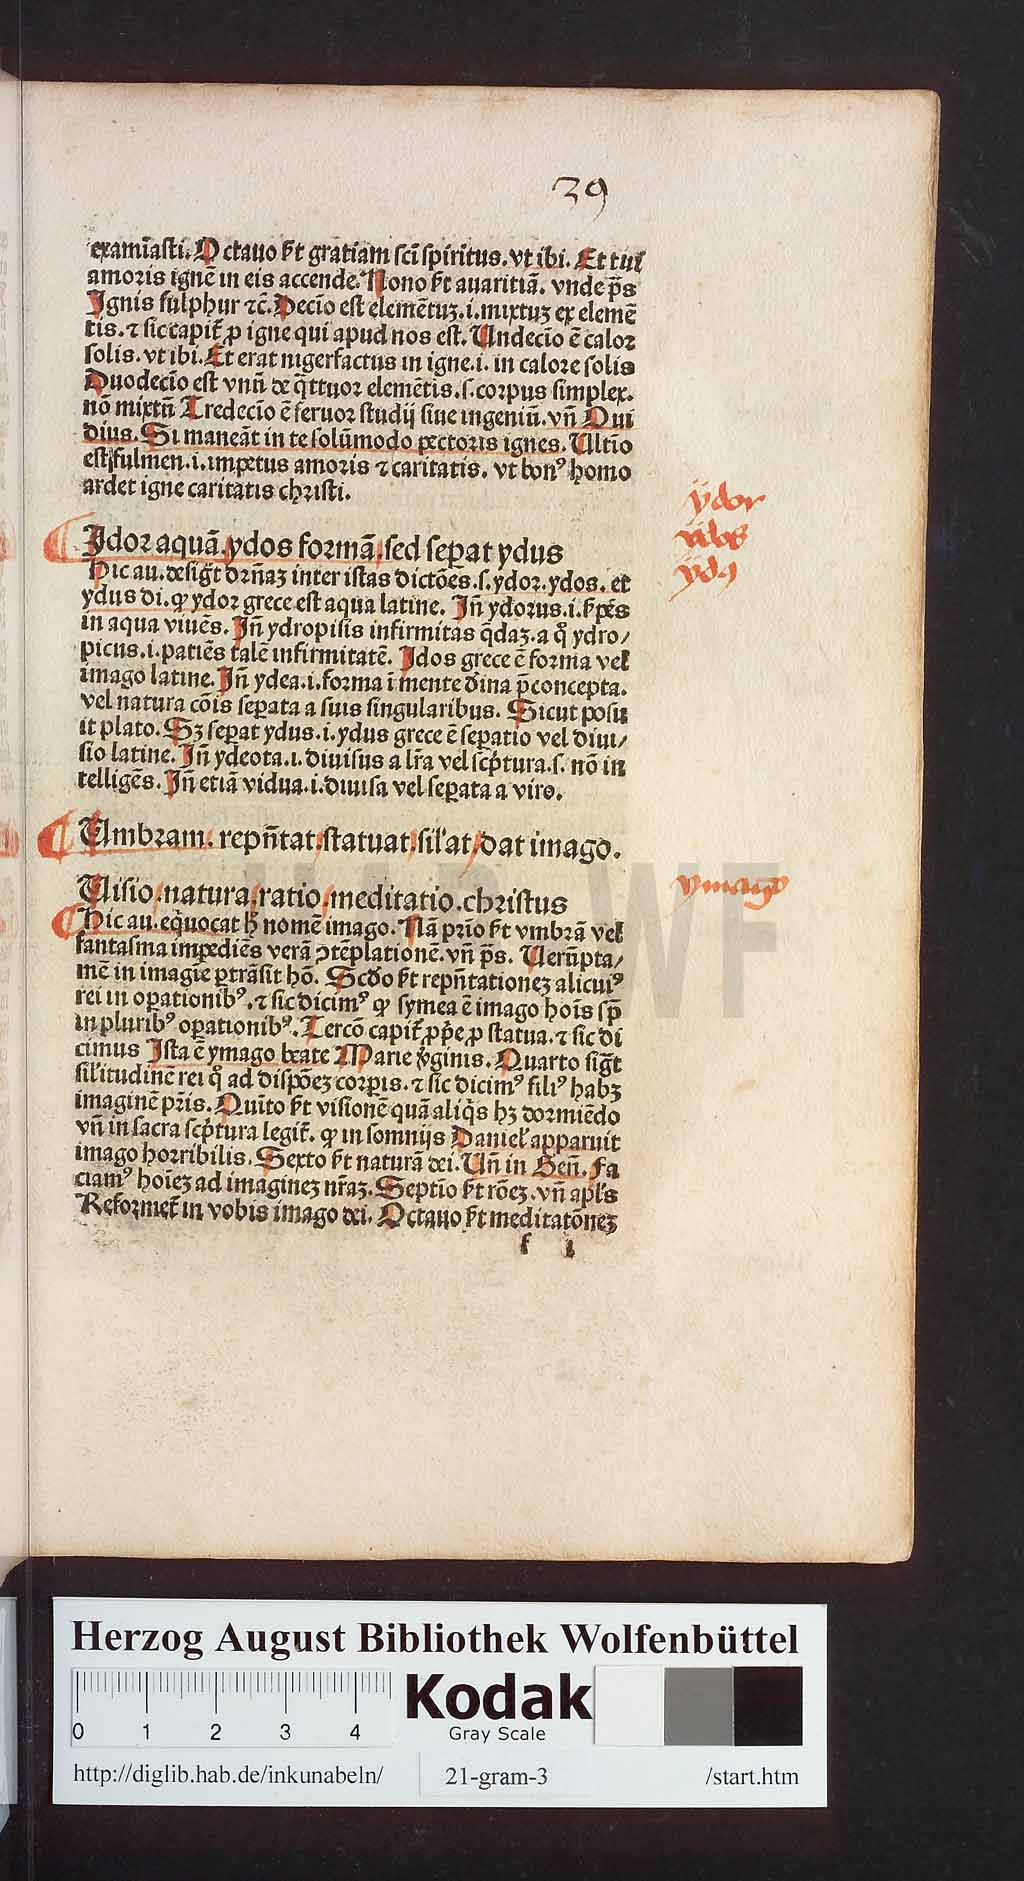 39
examīasti. Octauo sꝫt gratiam scī spiritus. vt ibi. Et tui
amoris ignē in eis accende. Nono sꝫt auaritiā. vnde ps̄
Ignis sulphur ⁊c̄. Decīo est elemētuꝫ .i. mixtuꝫ ex elemē
tis. ⁊ sic capit̄ ꝓ igne qui apud nos est. Undecīo ē calor
solis. vt ibi. Et erat nigerfactus in igne .i. in calore solis
Duodecīo est vnū de q̄ttuor elemētis .s. corpus simplex.
nō mixtū Tredecīo ē feruor studij siue ingeniū. vn̄ Oui
dius. Si maneāt in te solūmodo pectoris ignes. Ultīo
est fulmen .i. impetus amoris ⁊ caritatis. vt bonꝰ homo
ardet igne caritatis christi.
ydor
ydos
ydꝰ
Idor aquā. ydos formā. sed seꝑat ydus
Hic au. desigt̄ dr̄n̄aꝫ inter istas dictōes .s. ydor. ydos. et
ydus di. ꝙ ydor grece est aqua latine. Jn̄ ydorus .i. sꝑēs
in aqua viuēs. Jn̄ ydropisis infirmitas q̄daꝫ. a qͦ ydro/
picus .i. patiēs talē infirmitatē. Idos grece ē forma vel
imago latine. Jn̄ ydea .i. forma ī mente diīna p̄concepta.
vel natura cōis seꝑata a suis singularibus. Sicut posu
it plato. Sꝫ seꝑat ydus .i. ydus grece ē seꝑatio vel diui/
sio latine. Jn̄ ydeota .i. diuisus a lr̄a vel sc̄ptura .s. nō in
telligēs. Jn̄ etiā vidua .i. diuisa vel seꝑata a viro.
Umbram. repn̄tat. statuat. sil'at. dat imago.
ymago
Uisio. natura. ratio. meditatio. christus
Hic au. equocat hͦ nomē imago. Nā prīo sꝫt vmbrā vel
fantasma impediēs verā ꝯtēplationē. vn̄ ps̄. Uerūpta/
mē in imagīe ꝑtrāsit hō. Scd̄o sꝫt repn̄tationeꝫ alicuiꝰ
rei in oꝑationibꝰ. ⁊ sic dicimꝰ ꝙ symea ē imago hoīs sp̄
in pluribꝰ oꝑationibꝰ. Tercō capit̄ ꝓpͥe ꝓ statua. ⁊ sic di
cimus Ista ē ymago beate Marie v̄ginis. Quarto sigt̄
sil'itudinē rei qͦ ad dispōeꝫ corꝑis. ⁊ sic dicimꝰ filiꝰ habꝫ
imaginē pr̄is. Quīto sꝫt visionē quā aliq̄s hꝫ dormiēdo
vn̄ in sacra sc̄ptura legit̄. ꝙ in somnijs Daniel' apparuit
imago horribilis. Sexto sꝫt naturā dei. Un̄ in Gen̄. Fa
ciamꝰ hoīeꝫ ad imagineꝫ nr̄aꝫ. Septīo sꝫt rōeꝫ. vn̄ apl's
Reformet̄ in vobis imago dei. Octauo sꝫt meditatōneꝫ
f i
HAB WF
Herzog August Bibliothek Wolfenbüttel
Kodak
Gray Scale
0 1 2 3 4
http://diglib.hab.de/inkunabeln/ 21-gram-3 /start.htm